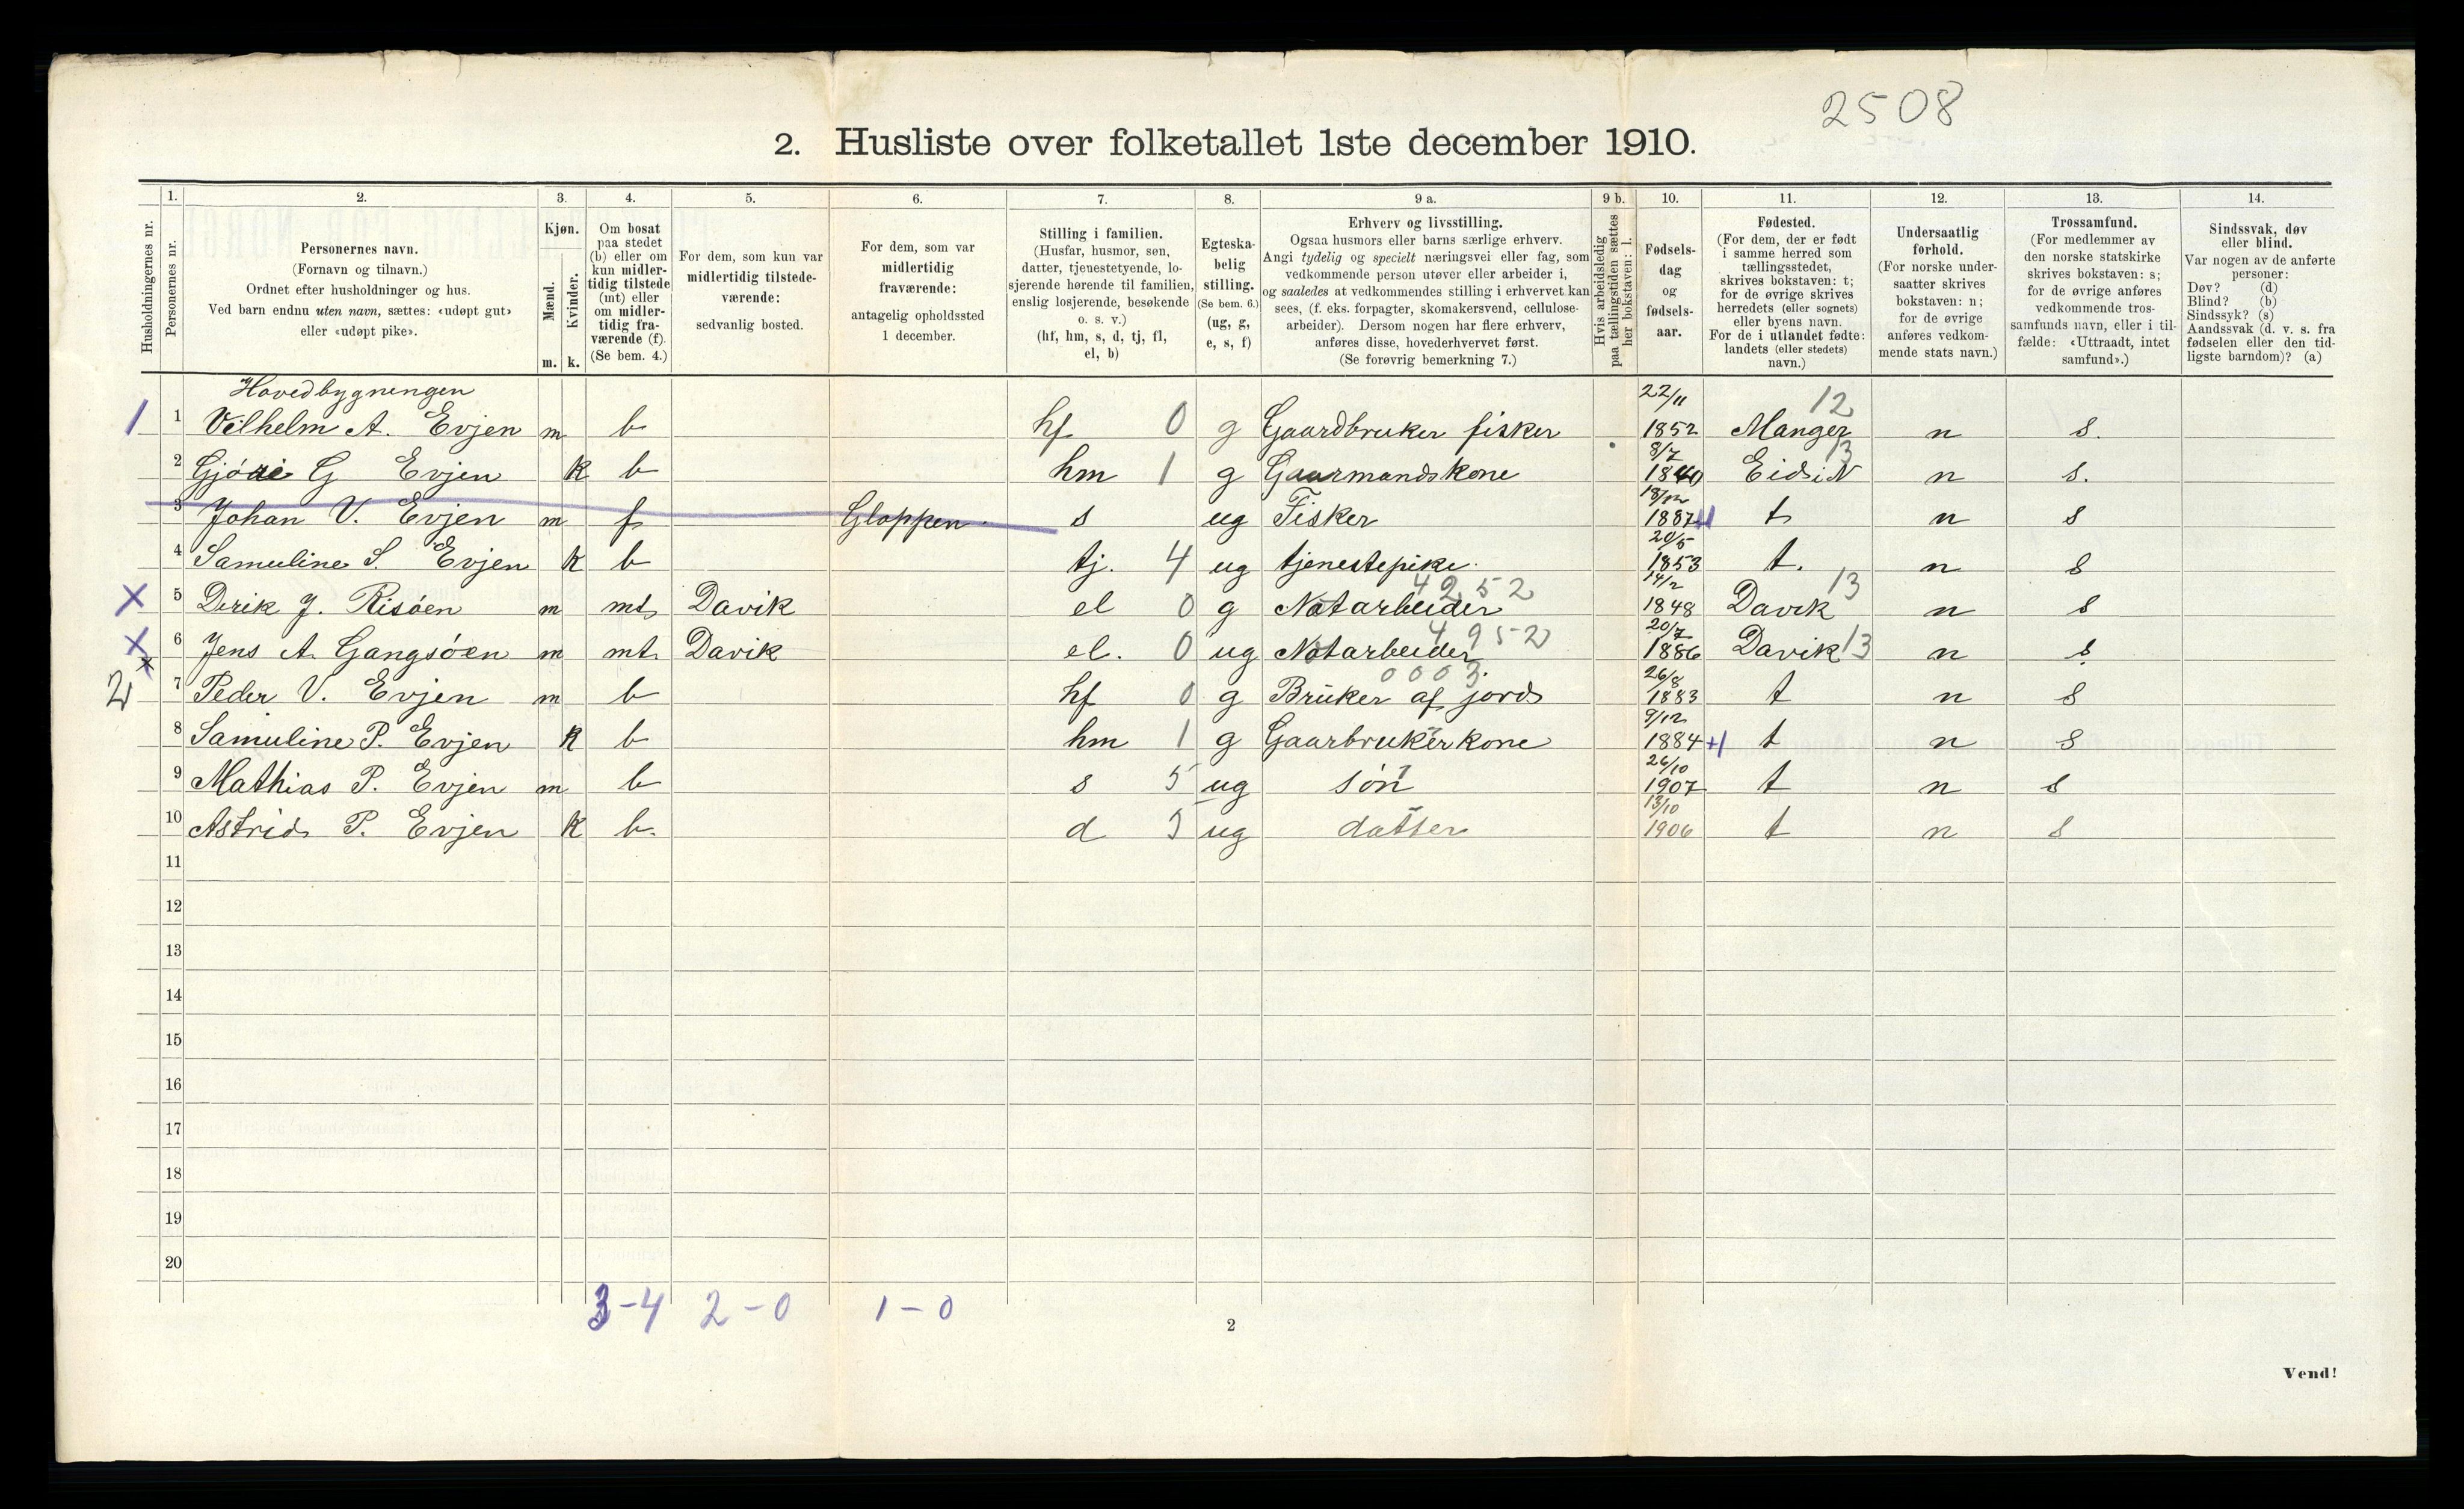 2508
2. Husliste over folketallet 1ste december 1910.
Husholdningernes nr.
1. Personernes nr.
2. Personernes navn. (Fornavn og tilnavn.) Ordnet efter husholdninger og hus. Ved barn endnu uten navn, sættes: «udøpt gut» eller «udøpt pike».
3. Kjøn. Mænd. m. Kvinder. k.
4. Om bosat paa stedet (b) eller om kun midlertidig tilstede (mt) eller om midlertidig fraværende (f). (Se bem. 4.)
5. For dem, som kun var midlertidig tilstedeværende: sedvanlig bosted.
6. For dem, som var midlertidig fraværende: antagelig opholdssted 1 december.
7. Stilling i familien. (Husfar, husmor, søn, datter, tjenestetyende, losjerende hørende til familien, enslig losjerende, besøkende o. s. v.) (hf, hm, s, d, tj, fl, el, b)
8. Egteskabelig stilling. (Se bem. 6.) (ug, g, e, s, f)
9 a. Erhverv og livsstilling. Ogsaa husmors eller barns særlige erhverv. Angi tydelig og specielt næringsvei eller fag, som vedkommende person utøver eller arbeider i, og saaledes at vedkommendes stilling i erhvervet kan sees, (f. eks. forpagter, skomakersvend, cellulosearbeider). Dersom nogen har flere erhverv, anføres disse, hovederhvervet først. (Se forøvrig bemerkning 7.)
9 b. Hvis arbeidsledig paa tællingstiden sættes her bokstaven: l.
10. Fødselsdag og fødselsaar.
11. Fødested. (For dem, der er født i samme herred som tællingsstedet, skrives bokstaven: t; for de øvrige skrives herredets (eller sognets) eller byens navn. For de i utlandet fødte: landets (eller stedets) navn.)
12. Undersaatlig forhold. (For norske undersaatter skrives bokstaven: n; for de øvrige anføres vedkommende stats navn.)
13. Trossamfund. (For medlemmer av den norske statskirke skrives bokstaven: s; for de øvrige anføres vedkommende trossamfunds navn, eller i tilfælde: «Uttraadt, intet samfund».)
14. Sindssvak, døv eller blind. Var nogen av de anførte personer: Døv? (d) Blind? (b) Sindssyk? (s) Aandssvak (d. v. s. fra fødselen eller den tidligste barndom)? (a)
Hovedbygningen
1 1 Vilhelm A. Evjen m b hf 0 g Gaardbruker fisker 22/11 1852 Manger 12 n s.
2 Gjóri G Evjen k b hm 1 g Gaarmandskone 8/7 1840 Eid i N 13 n s.
3 Johan V. Evjen m f Gloppen s ug Fisker 18/12 1887 t n s
4 Samuline S. Evjen k b tj. 4 ug tjenestepike 20/5 1853 t. n s
X 5 Derik J. Risóen m mt Davik el 0 g Notarbeider 4252 14/2 1848 Davik 13 n s
X 6 Jens A Gangsóen m mt Davik el. 0 ug Notarbeider 4952 20/7 1886 Davik 13 n s
2 x 7 Peder V. Evjen m b hf 0 g Bruker af jord 0003 26/8 1883 t n s
8 Samuline P. Evjen k b hm 1 g Gaarbrukerkone 9/12 1884 +1 t n s
9 Mathias P. Evjen m b s 5 ug són 26/10 1907 t n s
10 Astrid P. Evjen k b d 5 ug datter 13/10 1906 t n s
11
12
13
14
15
16
17
18
19
20
3-4 2-0 1-0
2
Vend!